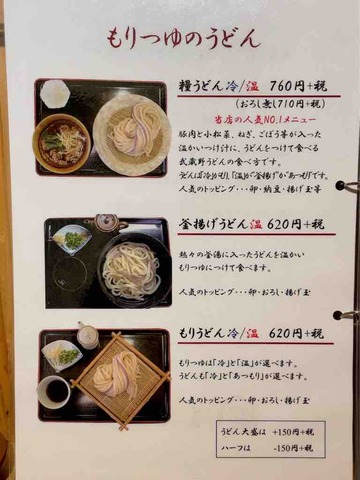 もりつゆのうどん
糧うどん 冷/温 760円+税
(おろし無し710円+税)
当店の人気NO.1メニュー
豚肉と小松菜、ねぎ、ごぼう等が入った
温かいつけ汁に、うどんをつけて食べる
武蔵野うどんの食べ方です。
うどんは「冷」がもり、「温」が「釜揚げ」か「あつもり」です。
人気のトッピング・・・卵・納豆・揚げ玉等
釜揚げうどん 温 620円+税
熱々の釜湯に入ったうどんを温かい
もりつゆにつけて食べます。
人気のトッピング・・・卵・おろし・揚げ玉
もりうどん 冷/温 620円+税
もりつゆは「冷」と「温」が選べます。
うどんも「冷」と「あつもり」が選べます。
人気のトッピング・・・卵・おろし・揚げ玉
うどん大盛は +150円+税
ハーフは -150円+税